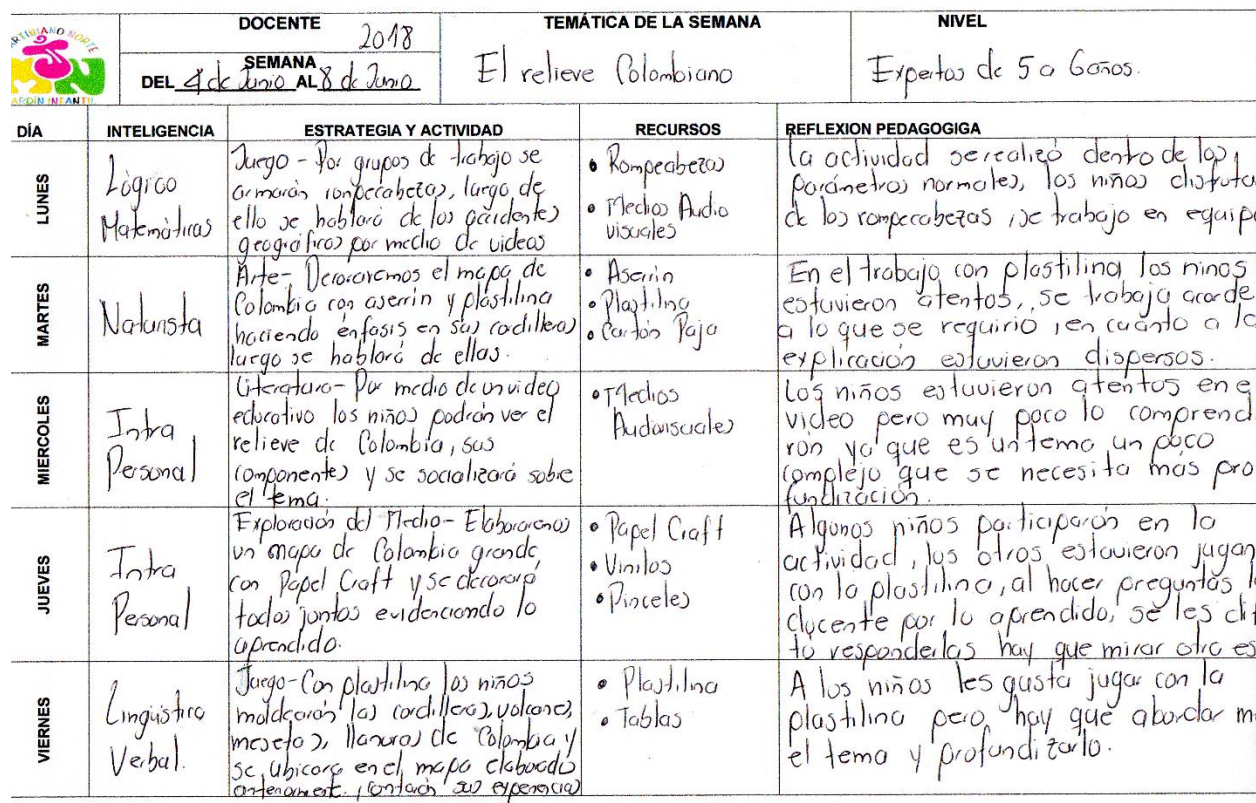 MARTINIANO NORTE
JARDIN INFANTIL
DOCENTE
2018
SEMANA
DEL 4 de Junio AL 8 de Junio
TEMÁTICA DE LA SEMANA
El relieve Colombiano
NIVEL
Expertos de 5 a 6 años.
DÍA
INTELIGENCIA
ESTRATEGIA Y ACTIVIDAD
RECURSOS
REFLEXION PEDAGOGIGA
LUNES
Lógico
Matemáticas
Juego - Por grupos de trabajo se
armarán rompecabezas, luego de
ello se hablará de los accidentes
geográficos por medio de videos
• Rompecabezas
• Medios Audio
visuales
la actividad se realizó dentro de los
parámetros normales, los niños disfruta
de los rompecabezas, se trabajo en equip
MARTES
Naturista
Arte - Decoraremos el mapa de
Colombia con aserrin y plastilina
haciendo énfasis en sus cordilleras
luego se hablará de ellas.
• Aserrin
• Plastilina
• Cartón Paja
En el trabajo con plastilina los ninos
estuvieron atentos, se trabajo acorde
a lo que se requirio, en cuánto a la
explicación estuvieron dispersos.
MIERCOLES
Intra
Personal
Literatura - Por medio de un video
educativo los niños podrán ver el
relieve de Colombia, sus
componentes y se socializará sobre
el tema.
• Medios
Audovisuales
Los niños estuvieron atentos en e
video pero muy poco lo comprend
rón ya que es un tema un poco
complejo que se necesita más pro
fundización.
JUEVES
Intra
Personal
Exploración del Medio - Elaboraremos
un mapa de Colombia grande
con Papel Craft y se decorará
todos juntos evidenciando lo
aprendido.
• Papel Craft
• Vinilos
• Pinceles
Algunos niños participarón en la
actividad, los otros estuvieron jugan
con la plastilina, al hacer preguntas l
docente por lo aprendido, se les difi
to responderlas hay que mirar otro es
VIERNES
Lingüistica
Verbal.
Juego - Con plastilina los niños
moldearán las cordilleras, volcanes,
mesetas, llanuras de Colombia y
se ubicara en el mapa elaborado
anteriormente. contarán sus experiencias
• Plastilina
• Tablas
A los niños les gusta jugar con la
plastilina pero hay que abordar m
el tema y profundizarlo.